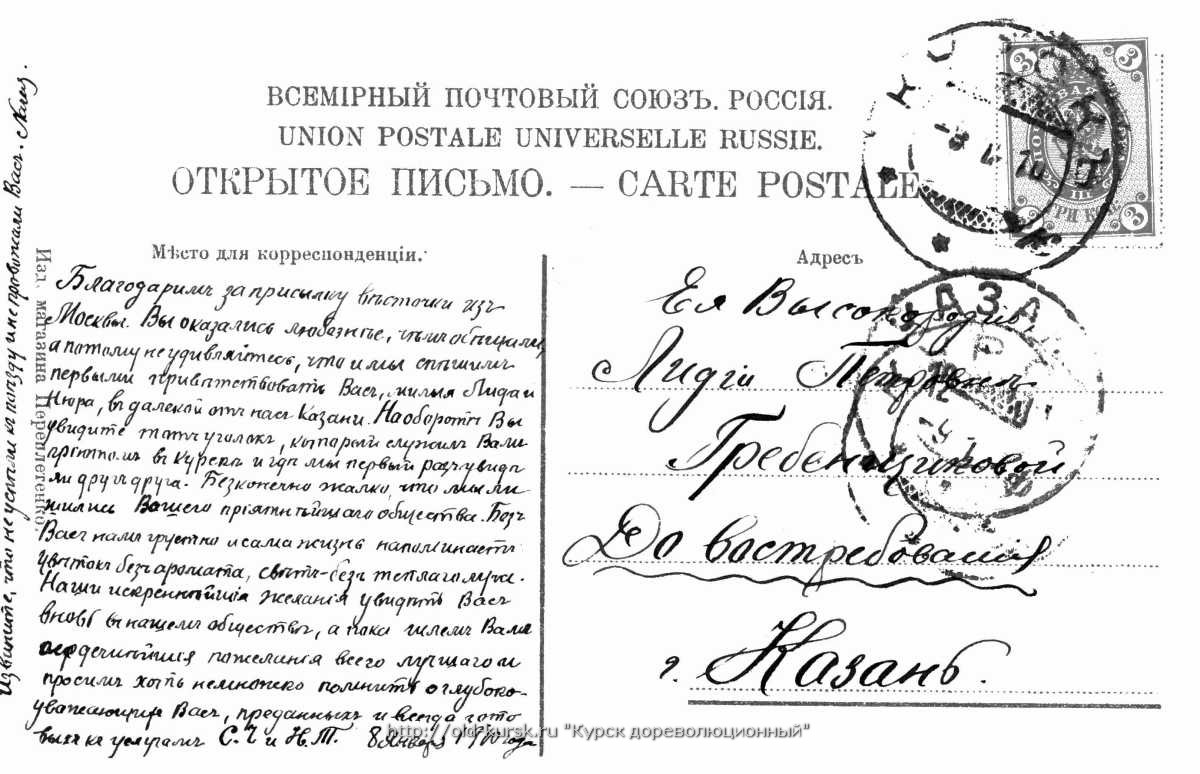 ВСЕМІРНЫЙ ПОЧТОВЫЙ СОЮЗЪ. РОССІЯ.
UNION POSTALE UNIVERSELLE RUSSIE.
ОТКРЫТОЕ ПИСЬМО. — CARTE POSTALE
Мѣсто для корреспонденціи.
Благодаримъ за присылку вѣсточки изъ
Москвы. Вы оказались любезнѣе, чѣмъ обѣщали,
а потому не удивляйтесь, что и мы спѣшимъ
первыми привѣтствовать Васъ, милыя Лида и
Нюра, въ далекой отъ насъ Казани. Наоборотъ Вы
увидите тотъ уголокъ, который служилъ Вамъ
пріютомъ въ Курскѣ и гдѣ мы первый разъ увидѣ
ли другъ друга. Безконечно жалко, что мы ли
шились Вашего пріятнѣйшаго общества. Безъ
Васъ намъ грустно и сама жизнь напоминаетъ
цвѣтокъ безъ аромата, свѣтъ безъ теплаго луча.
Наши искреннѣйшія желанія увидѣть Васъ
вновь въ нашемъ обществѣ, а пока шлемъ Вамъ
сердечнѣйшія пожеланія всего лучшаго и
просимъ хоть немножко помнить о глубоко-
уважающихъ Васъ, преданныхъ и всегда гото
выхъ къ услугамъ С.Ч и Н.Т. 8 Января года
Извините, что не успѣли къ поѣзду и не провожали Васъ.
Изд. магазина Переплетенко.
Адресъ
Ея Высокородію,
Лидіи Петровнѣ
Гребенщиковой
До востребованія
г. Казань.
3 3
3
ТРИ КОП
КАЗА
http://old-kursk.ru "Курск дореволюционный"